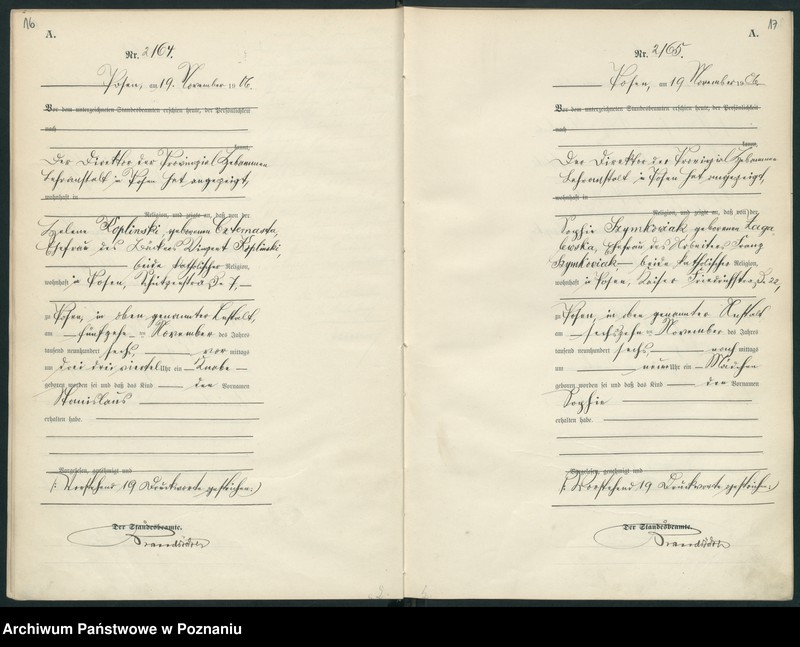 16
A.
Nr. 2164.
Posen, am 19. November 1906.
Vor dem unterzeichneten Standesbeamten erschien heute, der Persönlichkeit
nach
kannt,
Der Direktor der Provinzial Hebammen
Lehranstalt in Posen hat angezeigt,
wohnhaft in
Religion, und zeigte an, daß von der
Helene Koplinski, geborenen
Ehefrau des Bäckers Vincent Koplinski,
beide katholischer Religion,
wohnhaft in Posen, Schützenstraße 7,
zu Posen, in oben genannter Anstalt,
am fünfzehn ten November des Jahres
tausend neunhundert sechs, vor mittags
um drei drei viertel Uhr ein Knabe
geboren worden sei und daß das Kind den Vornamen
Stanislaus
erhalten habe.
Vorgelesen, genehmigt und
(: Vorstehend 19 Druckworte gestrichen:)
Der Standesbeamte.
17
A.
Nr. 2165.
Posen, am 19 November 1906.
Vor dem unterzeichneten Standesbeamten erschien heute, der Persönlichkeit
nach
kannt,
Der Direktor der Provinzial Hebammen
Lehranstalt in Posen hat angezeigt,
wohnhaft in
Religion, und zeigte an, daß von der
Sophie Szymkowiak geborenen Laga
lewska, Ehefrau des Arbeiters Franz
Szymkowiak, beide katholischer Religion,
wohnhaft in Posen, Kaiser Friedrichstraße 22,
zu Posen, in oben genannter Anstalt
am sechszehn ten November des Jahres
tausend neunhundert sechs, nach mittags
um neun Uhr ein Mädchen
geboren worden sei und daß das Kind den Vornamen
Sophie
erhalten habe.
Vorgelesen, genehmigt und
(: Vorstehend 19 Druckworte gestrichen:)
Der Standesbeamte.
Archiwum Państwowe w Poznaniu